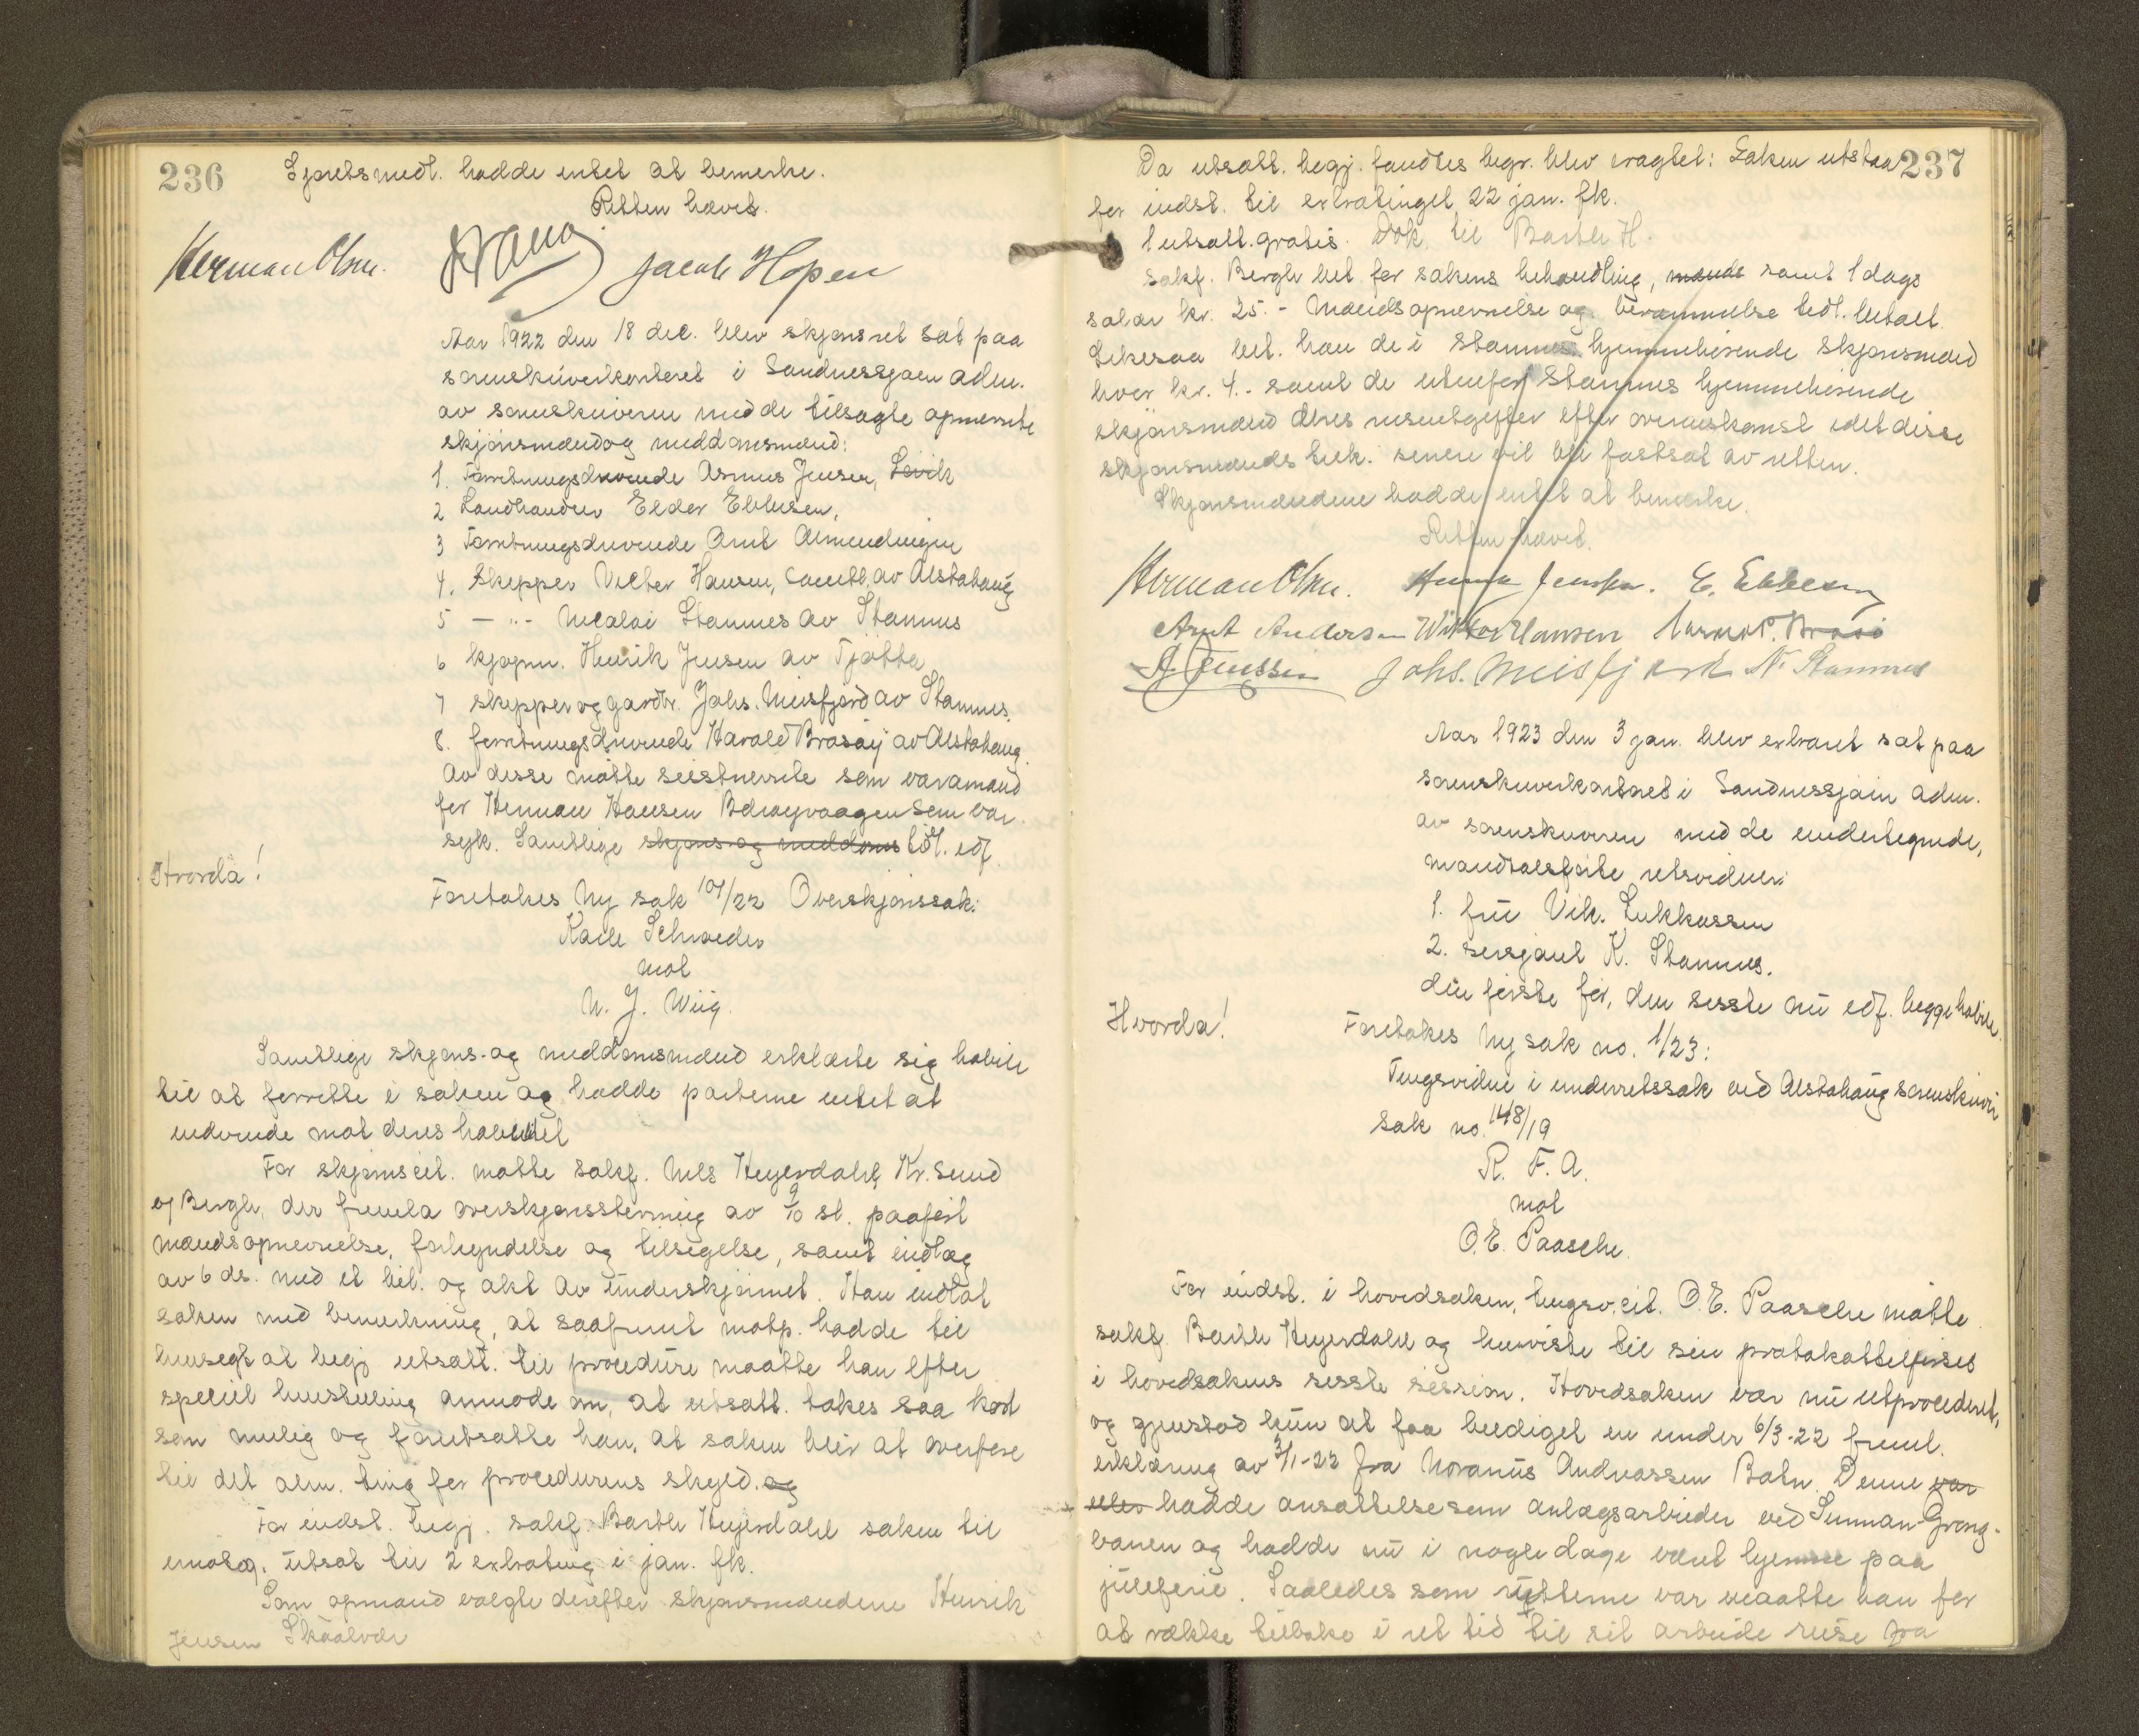 236
Sjøretsmedl. hadde intet at bemerke.
Retten hævet.
Herman Olsen. Jacob Hopen
Aar 1922 den 18 dec. blev skjønsret sat paa
sorenskriverkontoret i Sandnessjøen adm.
av sorenskriveren med de tilsagte opnævnte
skjønsmænd og meddomsmænd:
1. Forretningsdrivende Asmus Jensen, Levik
2 Landhandler Elder Ebbesen,
3 Forretningsdrivende Arnt Almendingen
4. Skipper Vicktor Hansen, samtl. av Alstahaug
5 — " — Nicolai Stamnes av Stamnes
6 kjøpm. Henrik Jensen av Tjøtta
7 skipper og gardbr. Johs. Meisfjord av Stamnes.
8. forretningsdrivende Harald Brasøy av Alstahaug.
Av disse møtte sidstnævnte som varamand
for Herman Hansen Belsøyvaagen som var
syk. Samtlige skjøns- og meddoms tidl. edf.
Hvorda!
Foretokes Ny sak 107/22 Overskjønssak:
Kalle Schrøder
mot
N. J. Wiig.
Samtlige skjøns- og meddomsmænd erklærte sig habile
til at forrette i saken og hadde parterne intet at
indvende mot deres habilitet
For skjønscit. møtte sakf. Nils Heyerdahl, Kr.sund
o/ Bergh, der fremla overskjønsstevning av 9/10 sl. paaført
mandsopnævnelse, forkyndelse og tilsigelse, samt indlæg
av 6 ds. med et bil. og akt av underskjønnet. Han indlot
saken med bemerkning, at saafremt motp. hadde til
hensigt at begj. utsatt. til procedure maatte han efter
speciel henstilling anmode om, at utsatt. tokes saa kort
som mulig og forutsatte han, at saken blir at overføre
til det alm. ting for procedurens skyld. og
For indst. begj. sakf. Barth Heyerdahl saken til
imøteg. utsat til 2 extrating i jan. fk.
Som opmand valgte derefter skjønsmændene Henrik
Jensen Skaalvær
237
Da utsatt. begj. fandtes begr. blev eragtet: Saken utstaar
for indst. til extratinget 22 jan. fk.
1 utsatt. gratis. Dok. til Barth H.
sakf. Bergh bet for sakens behandling, mands samt 1 dags
salær kr. 25.- Mandsopnævnelse og berammelse tidl. betalt.
Likesaa bet. han de i Stamnes hjemmehørende skjønsmænd
hver kr. 4.- samt de utenfor Stamnes hjemmehørende
skjønsmænd deres reiseutgifter efter overenskomst idet disse
skjønsmænds bet. senere vil bli fastsat av retten.
Skjønsmændene hadde intet at bemerke.
Retten hævet.
Herman Olsen. Asmus Jensen. E. Ebbesen
Arnt Andersen Wiktor Hansen Harald P. Brasø
H Jenssen Johs. Meisfjord N. Stamnes
Aar 1923 den 3 jan. blev extraret sat paa
sorenskriverkontoret i Sandnessjøen adm.
av sorenskriveren med de undertegnede,
mandtalsførte retsvidner:
1. frü Vik. Lukkassen
2. sersjant K. Stamnes.
den første før, den sidste nu edf. begge habile.
Hvorda!
Foretokes Ny sak no. 1/23:
Tingsvidne i underretssak ved Alstahaug sorenskriveri
sak no. 148/19
R. F. A.
mot
O. E. Paasche.
For indst. i hovedsaken, tingsv.cit. O. E. Paasche møtte
sakf. Barth Heyerdahl og henviste til sin protokoltilførsel
i hovedsakens sidste session. Hovedsaken var nu utprocederet,
og gjenstod kun at faa beediget en under 6/3-22 freml.
erklæring av 3/1-22 fra Noranus Andreassen Batn. Denne var
eller hadde ansættelse som anlægsarbeider ved Sunnan-Grong-
banen og hadde nu i nogle dage været hjemme paa
juleferie. Saaledes som rutterne var maatte han for
at række tilbake i ret tid til sit arbeide reise fra